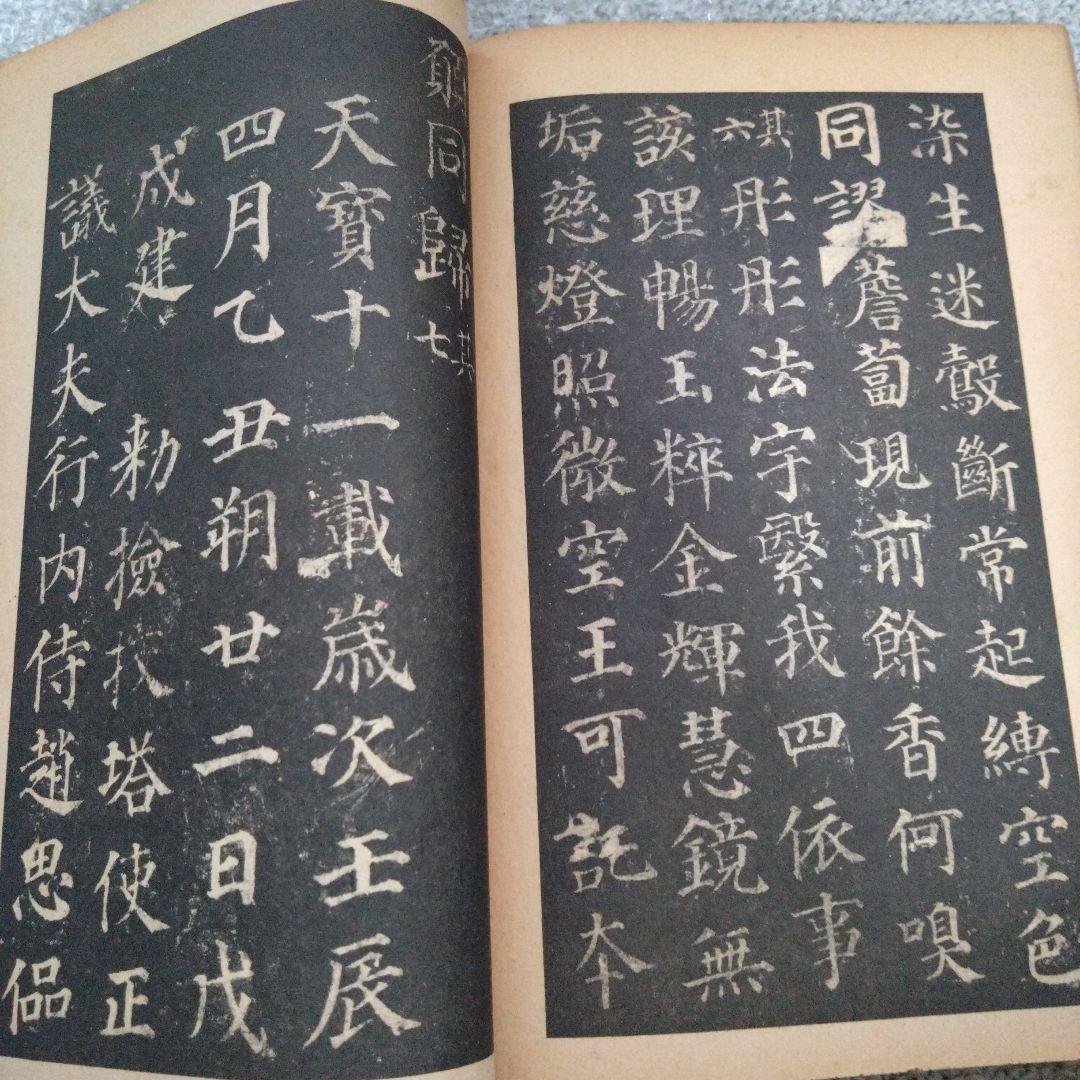 染生迷鷇斷常起縛空色
同謬薝蔔現前餘香何嗅
其六彤彤法宇繄我四依事
該理暢玉粹金輝慧鏡無
垢慈燈照微空王可託本
願同歸其七
天寶十一載歲次壬辰
四月乙丑朔廿二日戊
戌建 勑撿挍塔使正
議大夫行内侍趙思偘